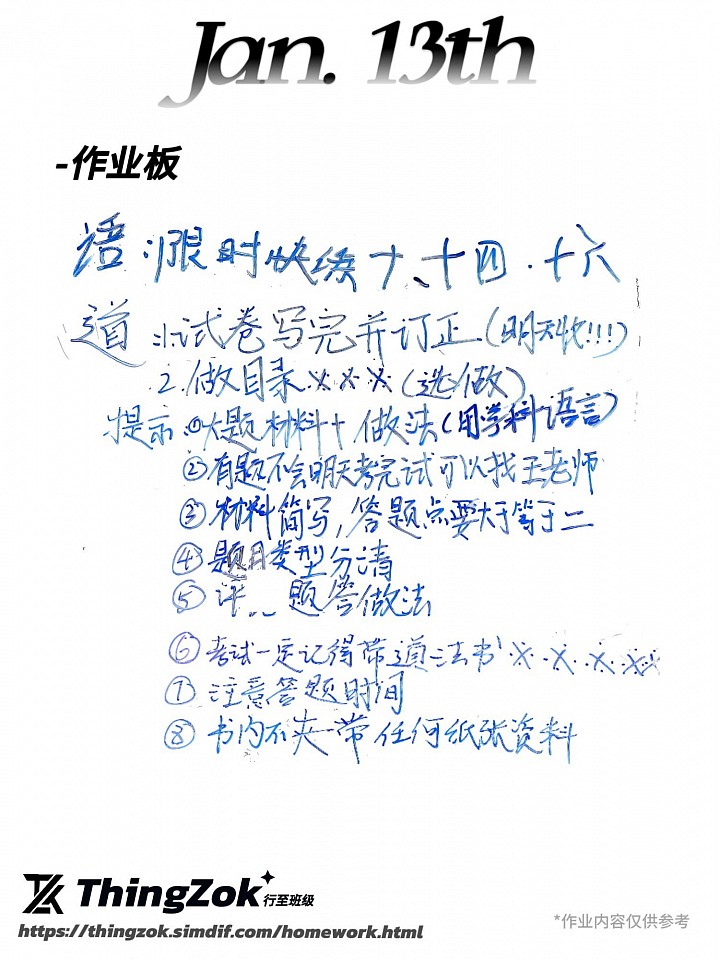 Jan. 13th
-作业板
语:限时快练十、十四、十六
道:1.试卷写完并订正(明天收!!!)
2.做目录※※※(选做)
提示:①大题材料+做法(用学科语言)
②有题不会明天考完试可以找王老师
③材料简写,答题点要大于等于二
④题目类型分清
⑤评..题答做法
⑥考试一定记得带道法书!※※※※※
⑦注意答题时间
⑧书内不夹带任何纸张资料
ThingZok
行至班级
https://thingzok.simdif.com/homework.html
*作业内容仅供参考